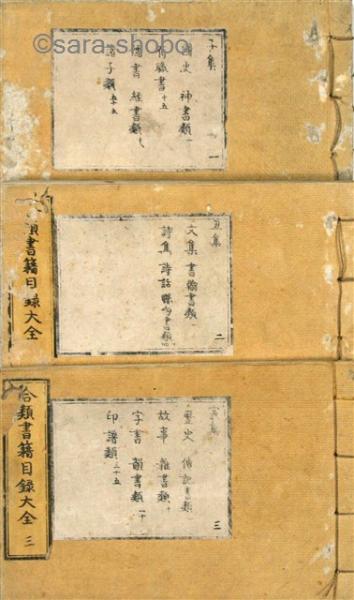 ©sara-shobo
子集
國史 神書類 一
有職書 十五
儒書 經書類
諸子類
一
類書籍目録大全
丑集
文集 書翰書類
詩集 詩話
二
合類書籍目録大全 三
寅集
歴史 傳記書類
故事 雜書類
字書 韻書類 二十
印譜類 三十五
三